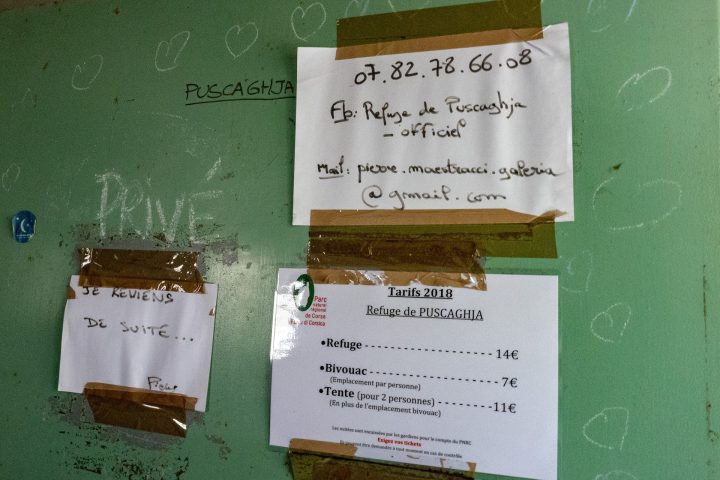 PUSCAGHJA
07.82.78.66.08
Fb: Refuge de Puscaghja
- officiel
Mail: pierre.maestracci.galeria
@gmail.com
PRIVÉ
JE REVIENS
DE SUITE...
Parc
naturel
régional
de Corse
di Corsica
Tarifs 2018
Refuge de PUSCAGHJA
•Refuge - - - - - - - - - - - - - - - - - - - 14€
•Bivouac - - - - - - - - - - - - - - - - - - - 7€
(Emplacement par personne)
•Tente (pour 2 personnes) - - - - - - - - - - - 11€
(En plus de l'emplacement bivouac)
Les nuitées sont encaissées par les gardiens pour le compte du PNRC
Exigez vos tickets
Ils peuvent être demandés à tout moment en cas de contrôle